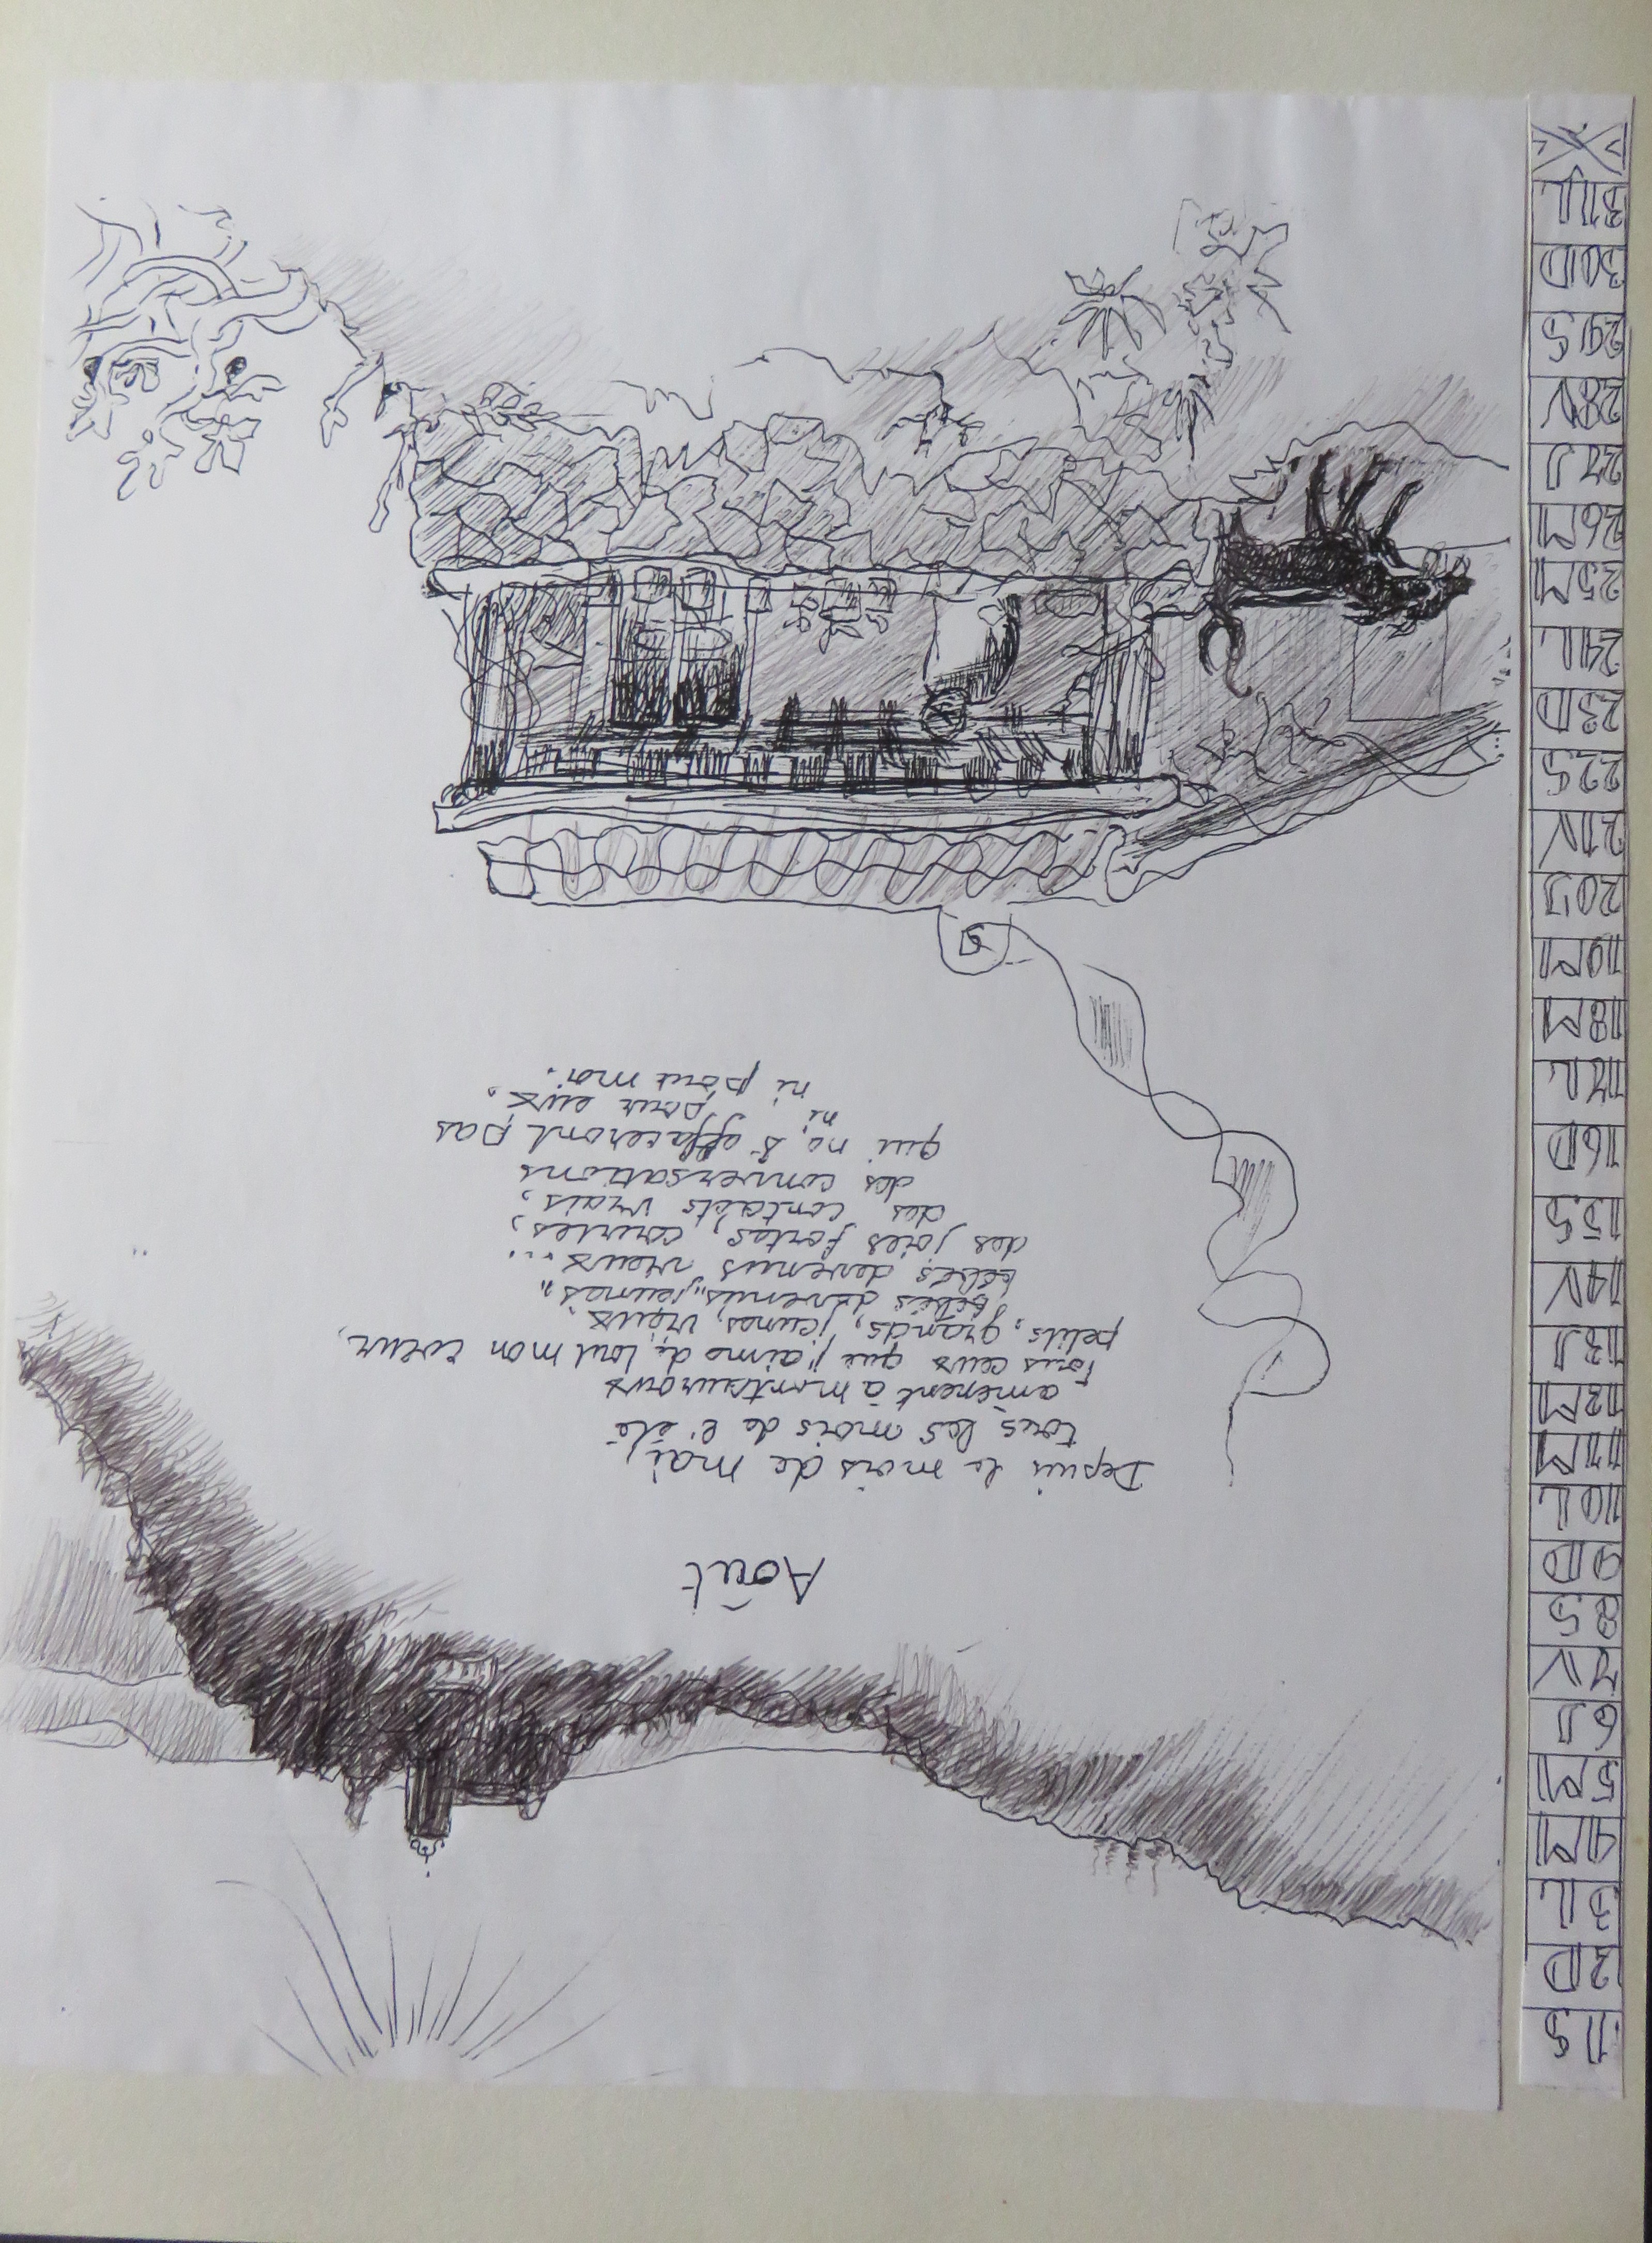 Août
Depuis le mois de mai,
tous les mois de l'été
amènent à montauroux
Tous ceux que j'aime de tout mon cœur,
petits, grands, jeunes, vieux.
bébés devenus "jeunes",
bébés devenus vieux...
des joies fortes, courtes,
des contacts vrais,
des conversations
qui ne s'effaceront pas
ni pour eux,
ni pour moi.
1 S
2 D
3 L
4 M
5 M
6 J
7 V
8 S
9 D
10 L
11 M
12 M
13 J
14 V
15 S
16 D
17 L
18 M
19 M
20 J
21 V
22 S
23 D
24 L
25 M
26 M
27 J
28 V
29 S
30 D
31 L